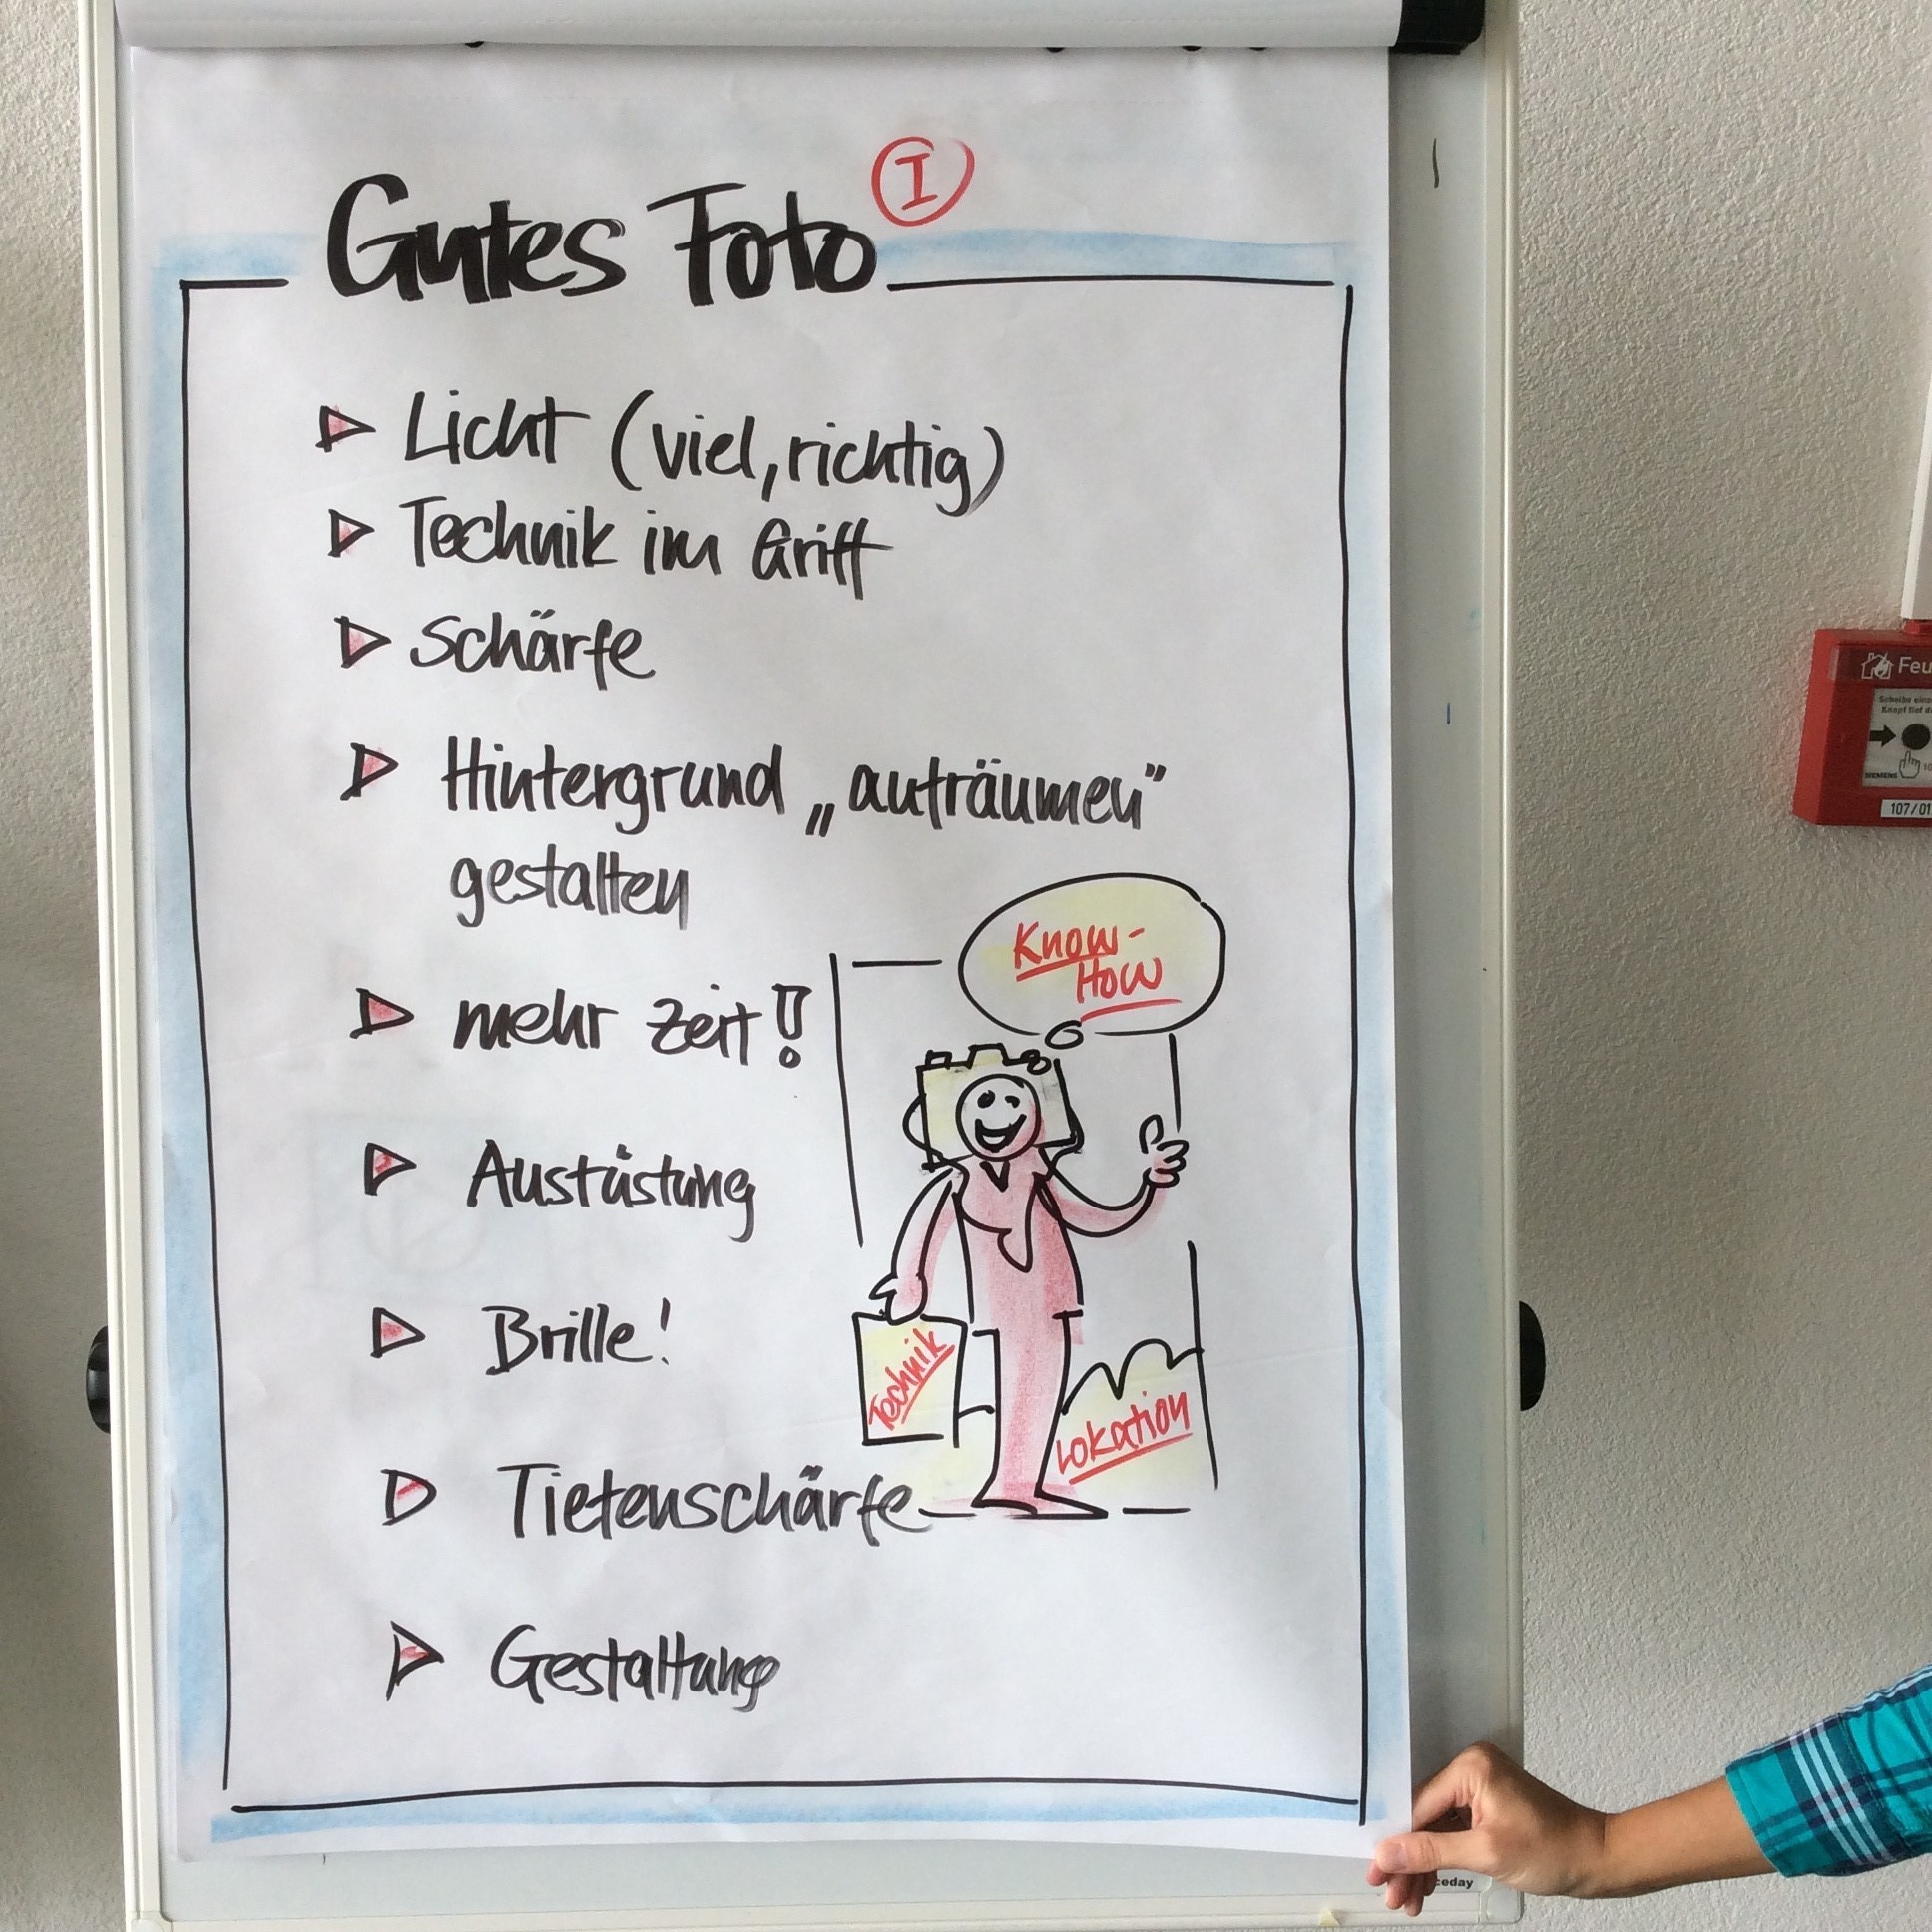 I
Gutes Foto
Licht (viel, richtig)
Technik im Griff
Schärfe
Hintergrund „aufräumen"
gestalten
Know-
How
mehr Zeit!
Ausrüstung
Brille!
Technik
Lokation
Tiefenschärfe
Gestaltung
Feu
Scheibe eins
Knopf tief d
SIEMENS
107/01
ceday